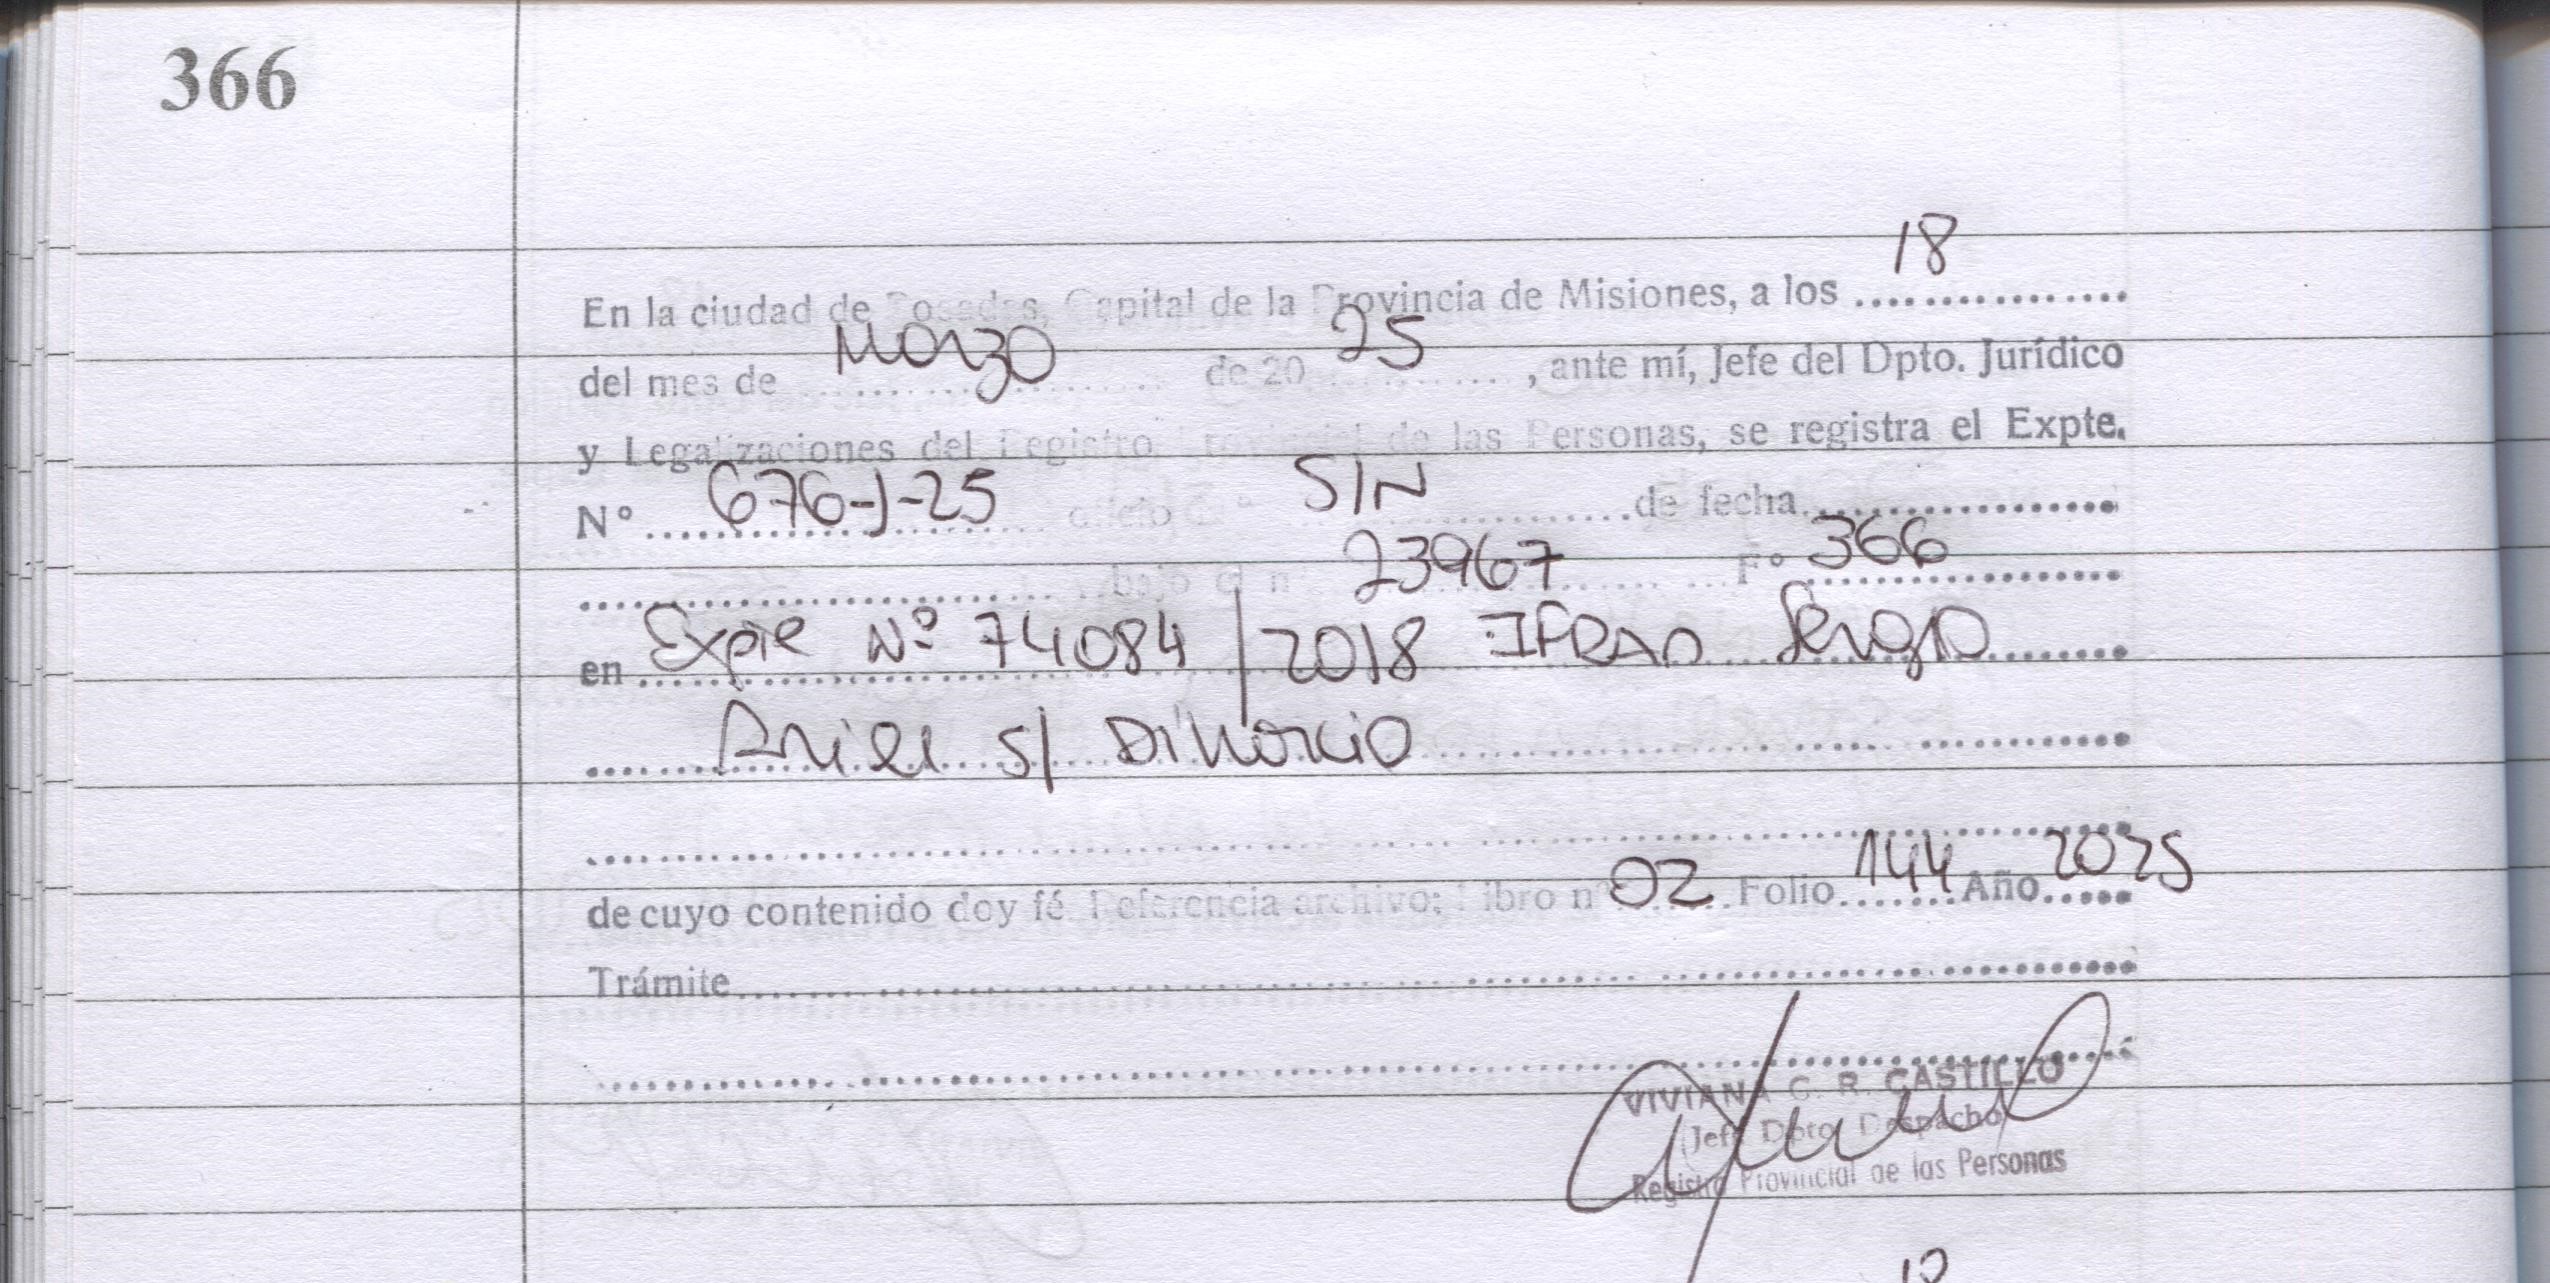 366
18
En la ciudad de Posadas, Capital de la Provincia de Misiones, a los ................
del mes de Marzo de 20 25 , ante mí, Jefe del Dpto. Jurídico
y Legalizaciones del Registro Provincial de las Personas, se registra el Expte.
Nº 676-J-25 oficio S/N de fecha
bajo el nº 23967 Fº 366
en Expte Nº 74084/2018 IFRAN Sergio
Ariel s/ Divorcio
de cuyo contenido doy fé Referencia archivo; Libro nº 02 Folio 144 Año 2025
Trámite
VIVIANA C. R. CASTILLO
Jefe Dpto. Despacho
Registro Provincial de las Personas